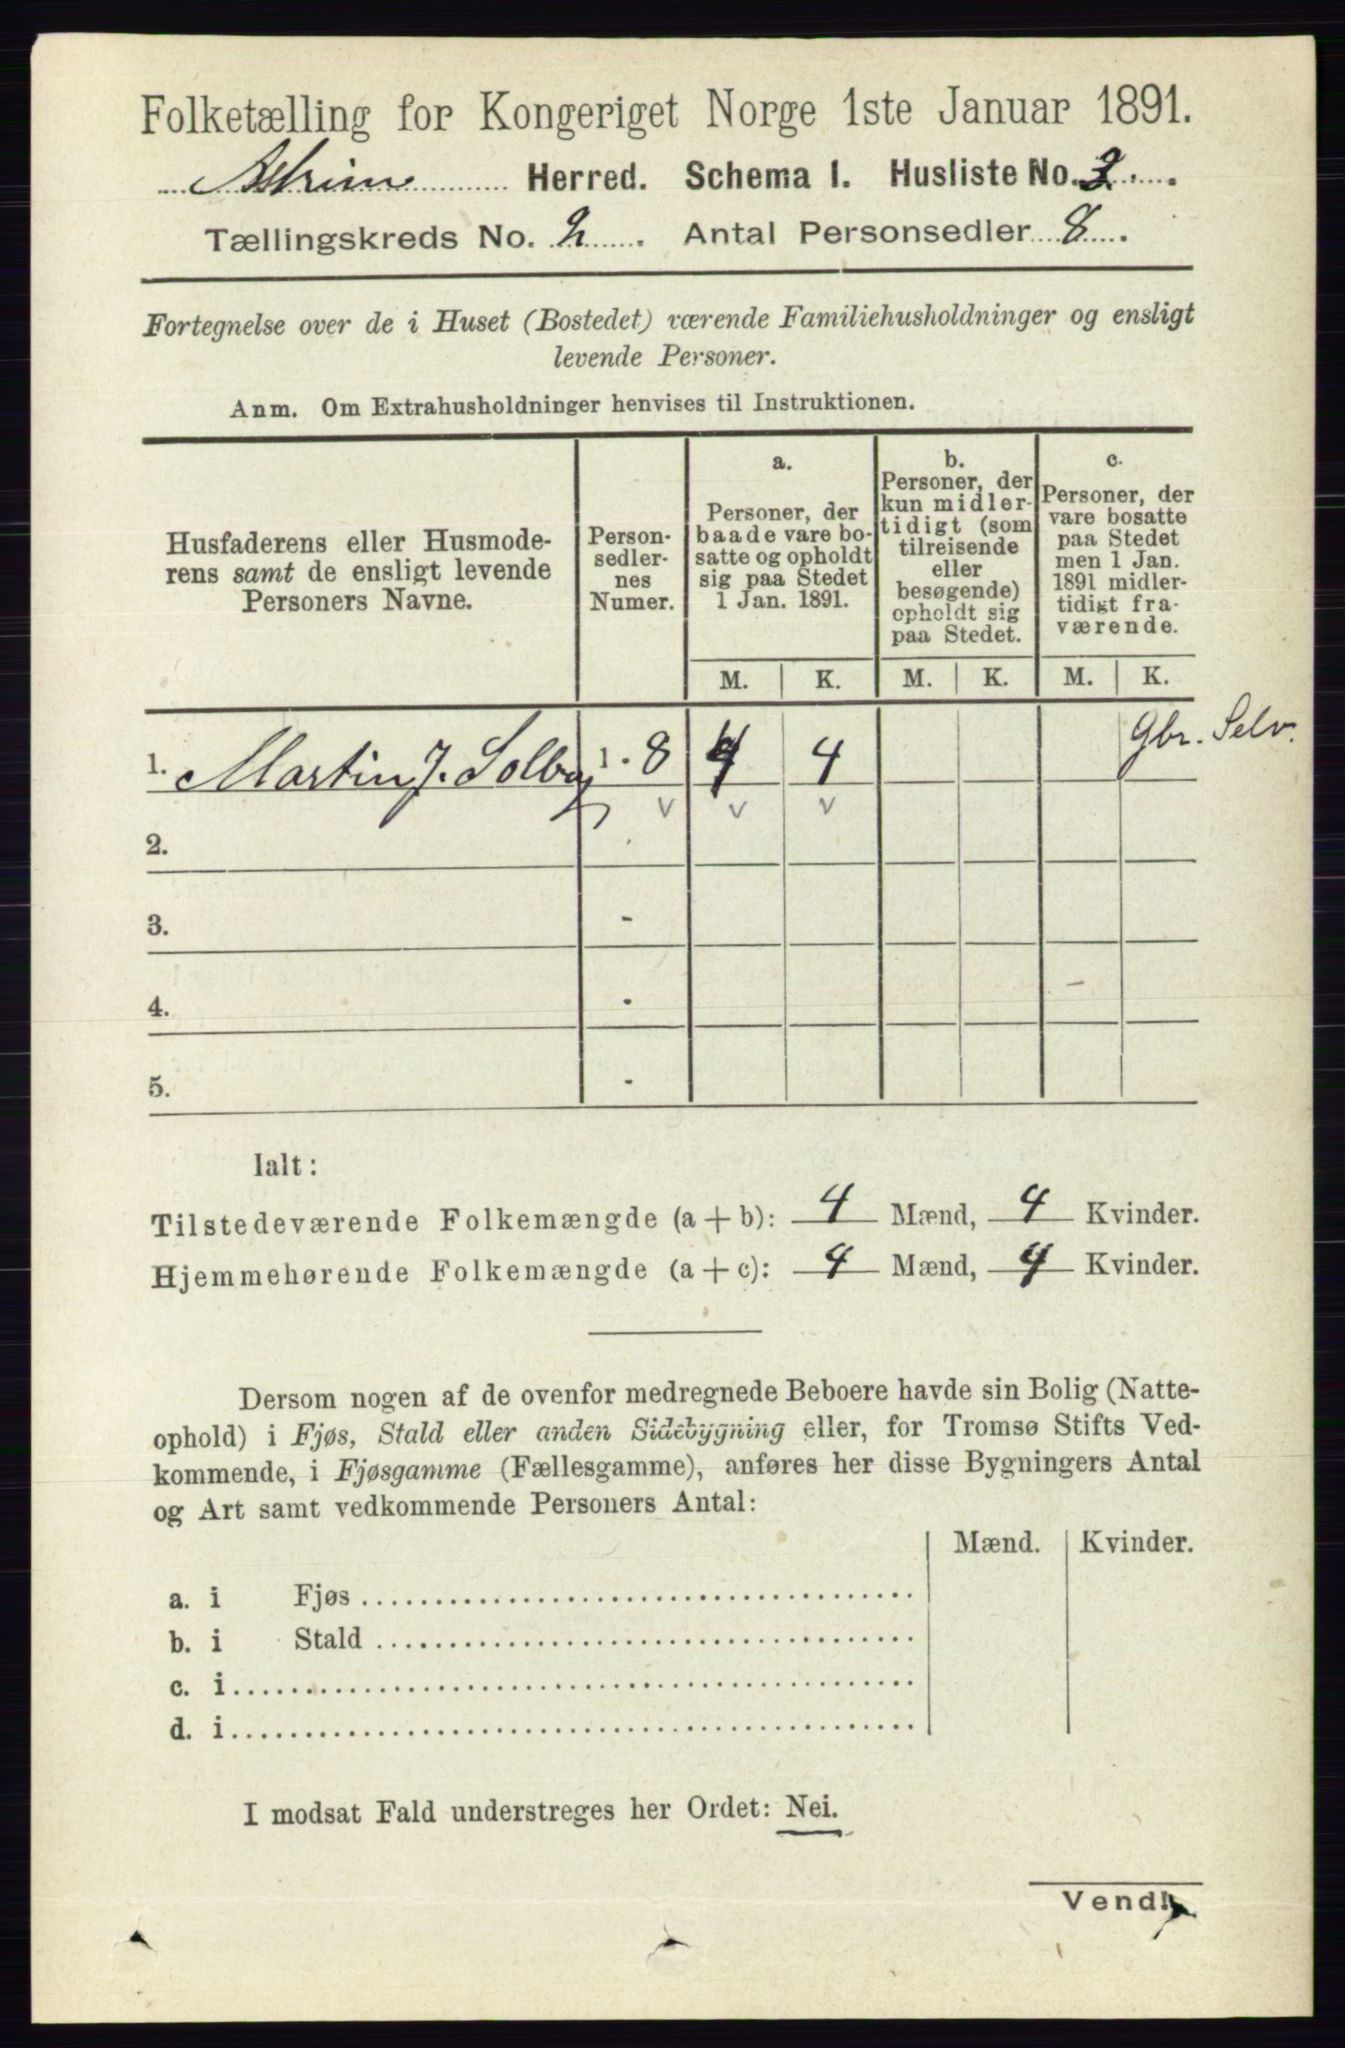 Folketælling for Kongeriget Norge 1ste Januar 1891.
Askim Herred. Schema I. Husliste No. 2.
Tællingskreds No. 2. Antal Personsedler 8.
Fortegnelse over de i Huset (Bostedet) værende Familiehusholdninger og ensligt
levende Personer.
Anm. Om Extrahusholdninger henvises til Instruktionen.
Husfaderens eller Husmode-
rens samt de ensligt levende
Personers Navne.
Person-
sedler-
nes
Numer.
a.
Personer, der
baade vare bo-
satte og opholdt
sig paa Stedet
1 Jan. 1891.
b.
Personer, der
kun midler-
tidigt (som
tilreisende
eller
besøgende)
opholdt sig
paa Stedet.
c.
Personer, der
vare bosatte
paa Stedet
men 1 Jan.
1891 midler-
tidigt fra-
værende.
M. K. M. K. M. K.
1. Martin J. Solberg 1. 8 4 4 Gbr. Selv.
v v v
2.
3. -
4. -
5. -
Ialt:
Tilstedeværende Folkemængde (a + b): 4 Mænd, 4 Kvinder.
Hjemmehørende Folkemængde (a + c): 4 Mænd, 4 Kvinder.
Dersom nogen af de ovenfor medregnede Beboere havde sin Bolig (Natte-
ophold) i Fjøs, Stald eller anden Sidebygning eller, for Tromsø Stifts Ved-
kommende, i Fjøsgamme (Fællesgamme), anføres her disse Bygningers Antal
og Art samt vedkommende Personers Antal:
Mænd. Kvinder.
a. i Fjøs
b. i Stald
c. i
d. i
I modsat Fald understreges her Ordet: Nei.
Vend!